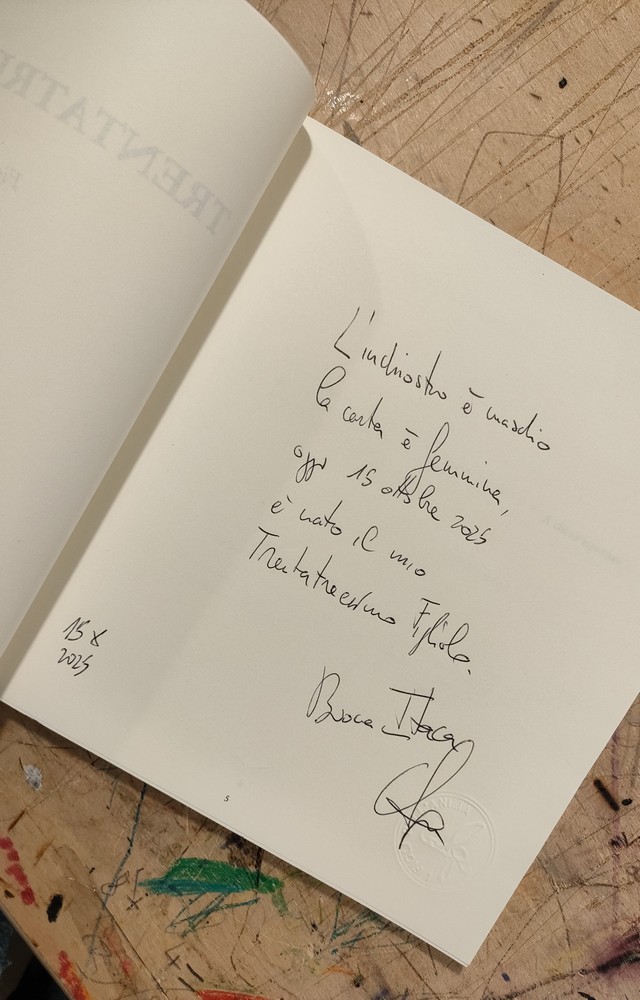 TRENTATRE
L'inchiostro è maschio
la carta è femmina,
oggi 15 ottobre 2025
è nato il mio
Trentatreesimo Figliolo.
Buona Itaca
15 X
2025
5